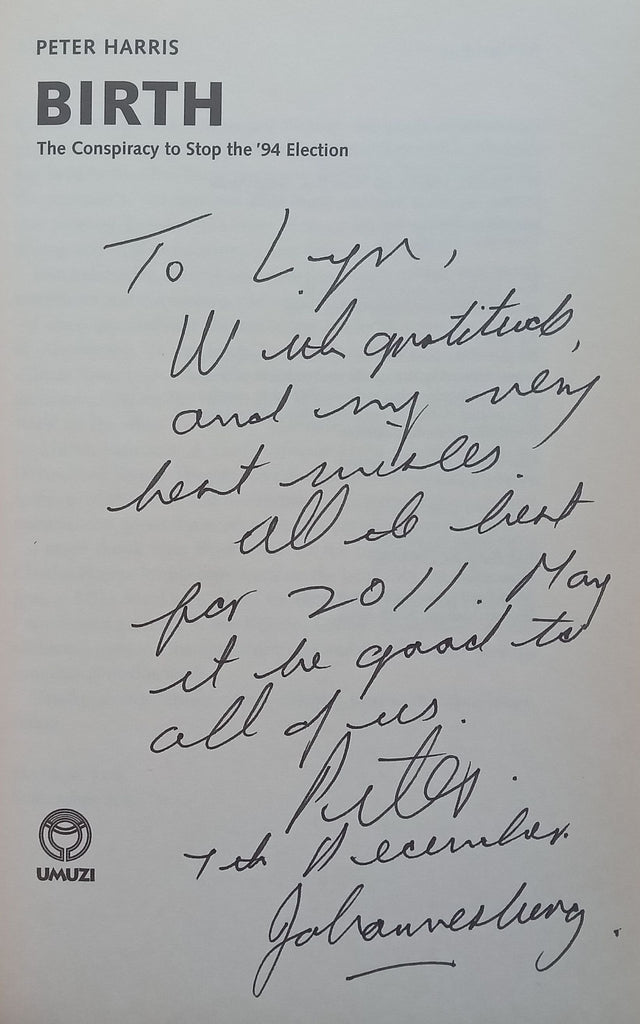 PETER HARRIS
BIRTH
The Conspiracy to Stop the '94 Election
To Lyn,
With gratitude,
and my very
best wishes.
All the best
for 2011. May
it be good to
all of us.
Peter.
7th December.
Johannesburg.
UMUZI